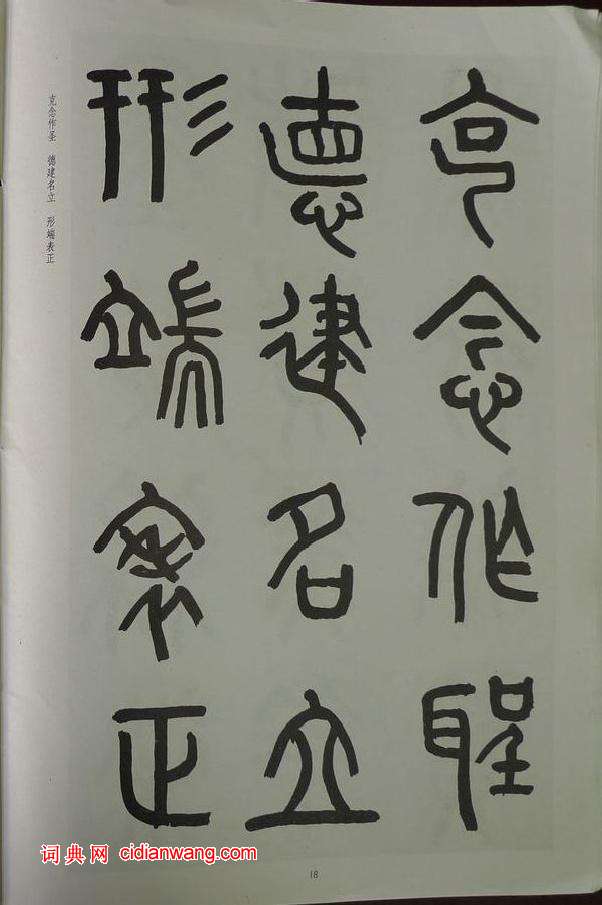 克念作聖
德建名立
形端表正
克念作圣 德建名立 形端表正
词典网 cidianwang.com
18